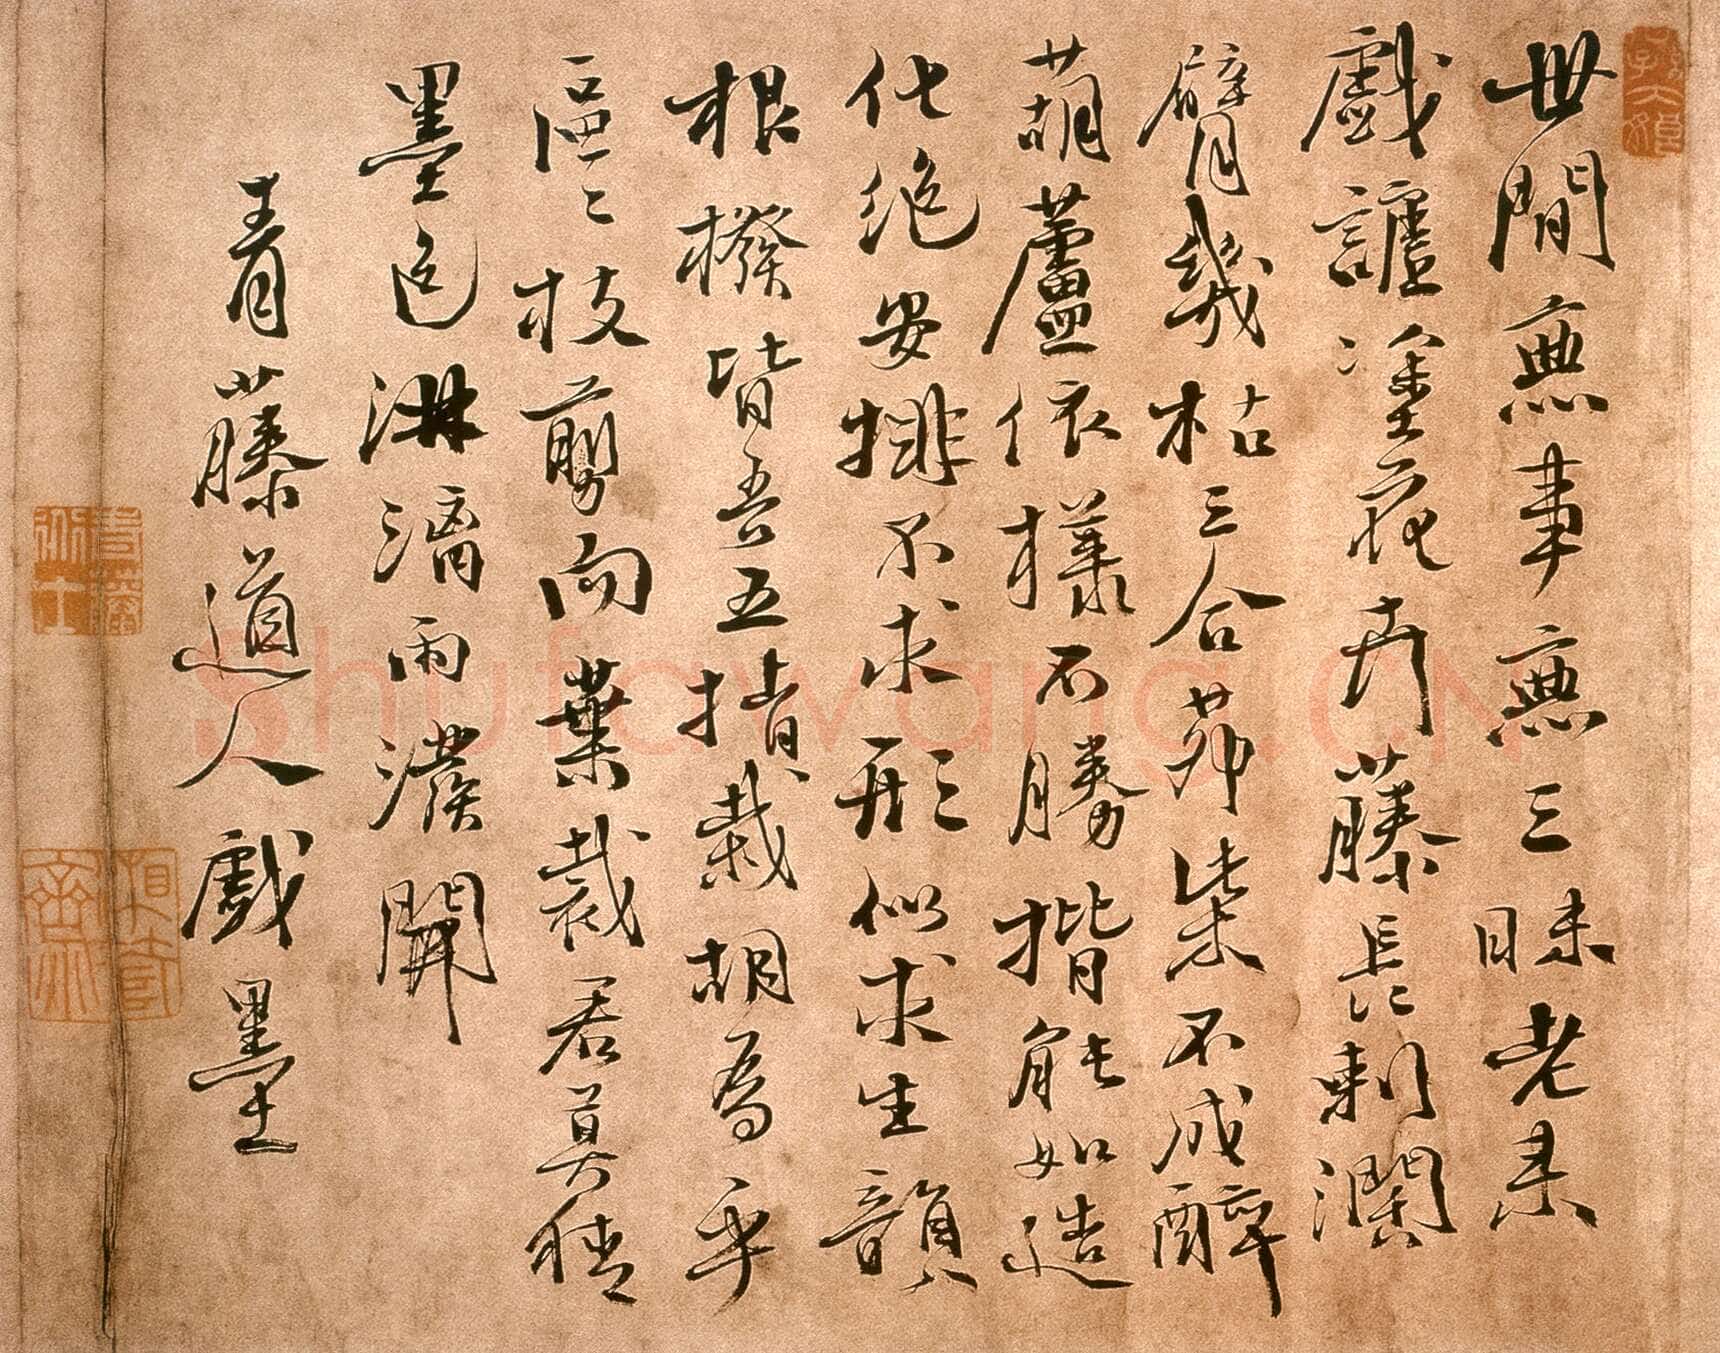 世間無事無三昧老來
戲謔塗花卉藤長刺闊
臂幾枯三合茅柴不成醉
葫蘆依樣不勝揩能如造
化絕安排不求形似求生韻
根撥皆吾五指栽胡為乎
區區枝剪向葉裁君莫猜
墨色淋漓雨潑開
青藤道人戲墨
shufawang.cn